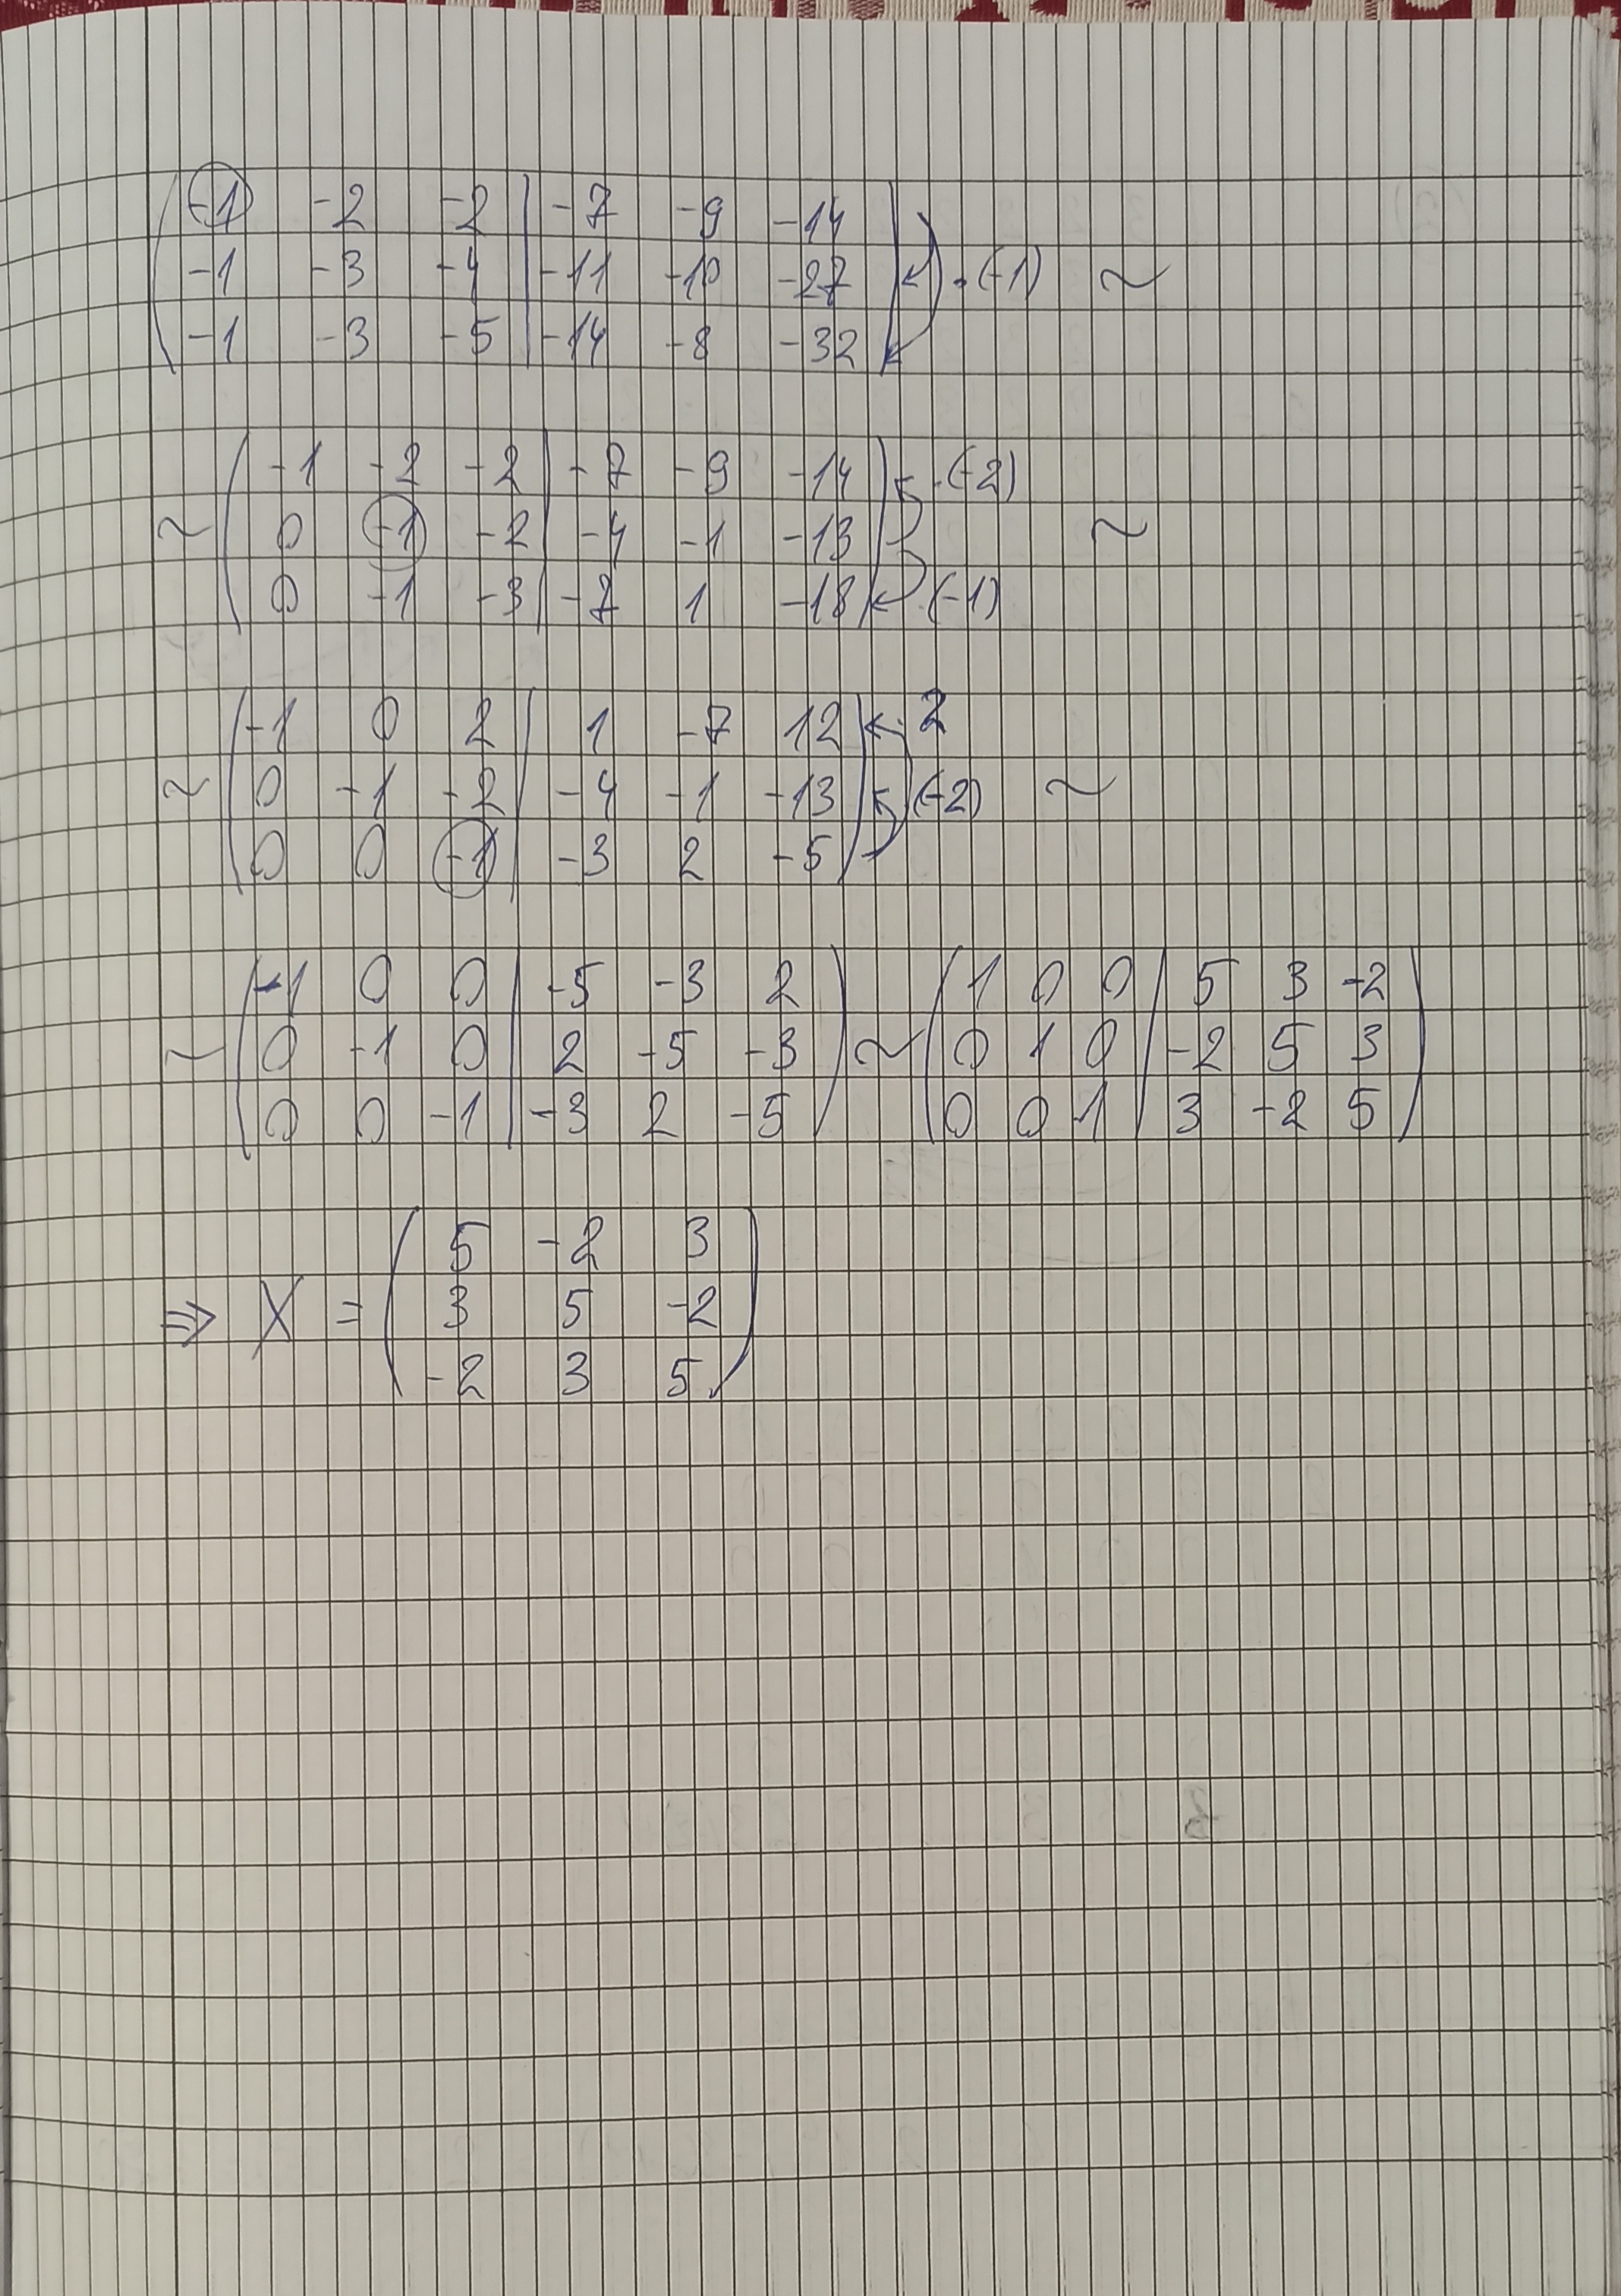 ( -1 -2 -2 | -7 -9 -14 )
( -1 -3 -4 | -11 -10 -27 ) · (-1) ~
( -1 -3 -5 | -14 -8 -32 )
( -1 -2 -2 | -7 -9 -14 ) · (-2)
~ ( 0 -1 -2 | -4 -1 -13 ) ~
( 0 -1 -3 | -7 1 -18 ) · (-1)
( -1 0 2 | 1 -7 12 ) · 2
~ ( 0 -1 -2 | -4 -1 -13 ) (-2) ~
( 0 0 -1 | -3 2 -5 )
( -1 0 0 | -5 -3 2 ) ( 1 0 0 | 5 3 -2 )
~ ( 0 -1 0 | 2 -5 -3 ) ~ ( 0 1 0 | -2 5 3 )
( 0 0 -1 | -3 2 -5 ) ( 0 0 1 | 3 -2 5 )
( 5 -2 3 )
⇒ X = ( 3 5 -2 )
( -2 3 5 )